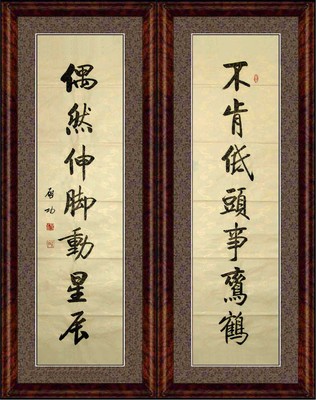 不肯低頭事鸞鶴
偶然伸脚動星辰
启功